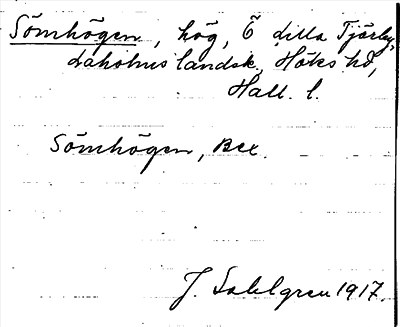 Sömhögen, hög, Ö Lilla Tjärby,
Laholms landsk., Höks hd,
Hall. l.
Sömhögen, Bex.
J. Sahlgren 1917.